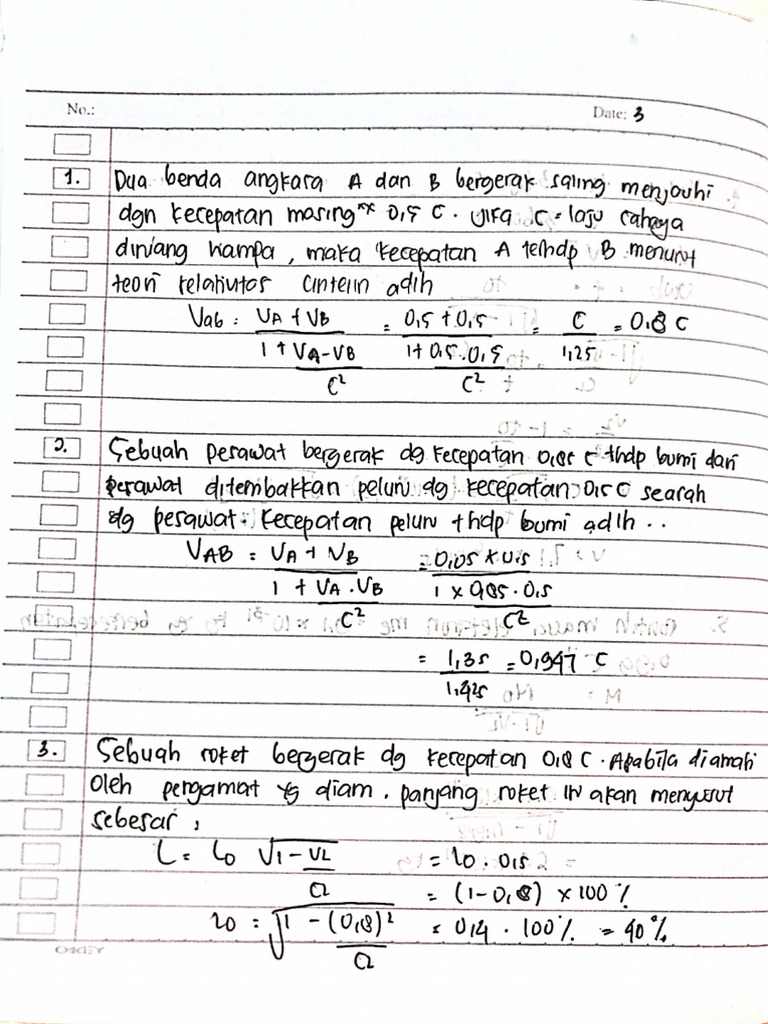 No.: Date: 3
1. Dua benda angkara A dan B bergerak saling menjauhi
dgn kecepatan masing" 0,5 C. Jika C = laju cahaya
diruang hampa, maka kecepatan A terhdp B menurut
teori relativitas adlh
Vab = VA + VB / 1 + VA-VB / C² = 0,5 + 0,5 / 1 + 0,5 . 0,5 / C² = C / 1,25 = 0,8 C
2. Sebuah pesawat bergerak dg kecepatan 0,85 C thdp bumi dari
pesawat ditembakkan peluru dg kecepatan 0,5 C searah
dg pesawat. Kecepatan peluru thdp bumi adlh ..
VAB = VA + VB / 1 + VA . VB / C² = 0,85 x 0,5 / 1 x 0,85 . 0,5 / C²
= 1,35 / 1,425 = 0,947 C
3. Sebuah roket bergerak dg kecepatan 0,8 C. Apabila diamati
oleh pengamat yg diam. panjang roket ini akan menyusut
sebesar,
L = Lo √1 - V2 / C2 = Lo . 0,5
= (1-0,8) x 100 %
Lo = √1 - (0,8)² / C2 = 0,4 . 100 % = 40 %